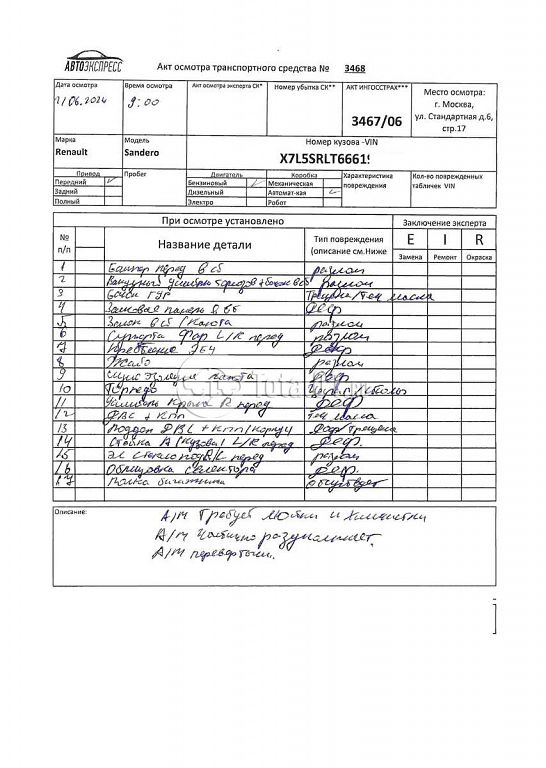 АВТОЭКСПРЕСС
Акт осмотра транспортного средства № 3468
Дата осмотра
Время осмотра
Акт осмотра эксперта СК*
Номер убытка СК**
АКТ ИНГОССТРАХ***
Место осмотра:
г. Москва,
ул. Стандартная д.6,
стр.17
21/06.2024
9:00
3467/06
Марка
Модель
Номер кузова -VIN
Renault
Sandero
X7L5SRLT6661
Привод
Пробег
Двигатель
Коробка
Характеристика
повреждения
Кол-во поврежденных
табличек VIN
Передний
Бензиновый
Механическая
Задний
Дизельный
Автомат-кая
Полный
Электро
Робот
При осмотре установлено
Заключение эксперта
№
п/п
Название детали
Тип повреждения
(описание см.Ниже
E I R
Замена Ремонт Окраска
1 Бампер перед в сб разлом
2 разлом
3 Бачок ГУР Трещина/теч масла
4 Замковая панель в сб деф
5 Замок в сб / капота разлом
6 Суппорта фар L/R перед разлом
7 Крепление ЭБУ деф
8 Жабо разлом
9 капота деф
10 Торпедо
11 Усилитель крыла R перед деф
12 ДВС + КПП теч масла
13 Поддон ДВС + КПП/корпус деф/трещина
14 Стойка А (кузова) L/R перед деф.
15 Эл стеклопод R/L перед разлом
16 Облицовка селектора деф.
17 Полка багажника отсутствует
Описание:
А/М требует мойки и химчистки
А/М частично разукомплект.
А/М перевертыш.